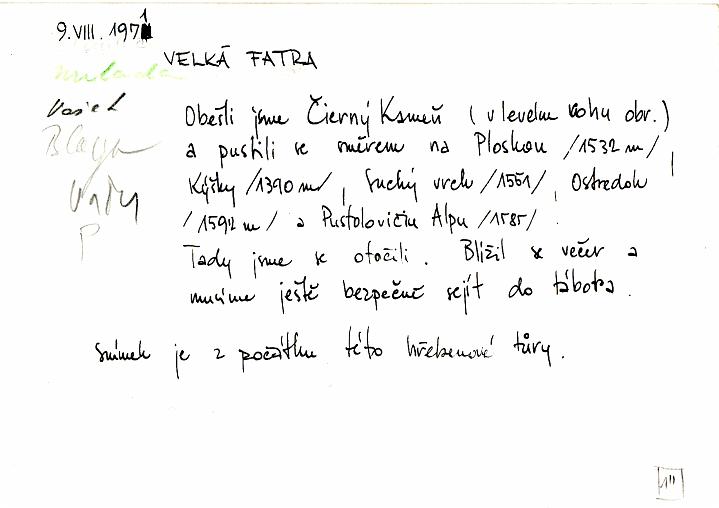 9. VIII. 1971
VELKÁ FATRA
Milada
Vašek
Obešli jsme Čierný Kameň (v levém rohu obr.)
a pustili se směrem na Ploskou /1532 m/,
Kýšky /1390 m/, Suchý vrch /1551/, Ostredok
/1592 m/ a Pustolovičiu Alpu /1585/.
Tady jsme se otočili. Blížil se večer a
musíme ještě bezpečně sejít do tábora.
Snímek je z počátku této hřebenové túry.